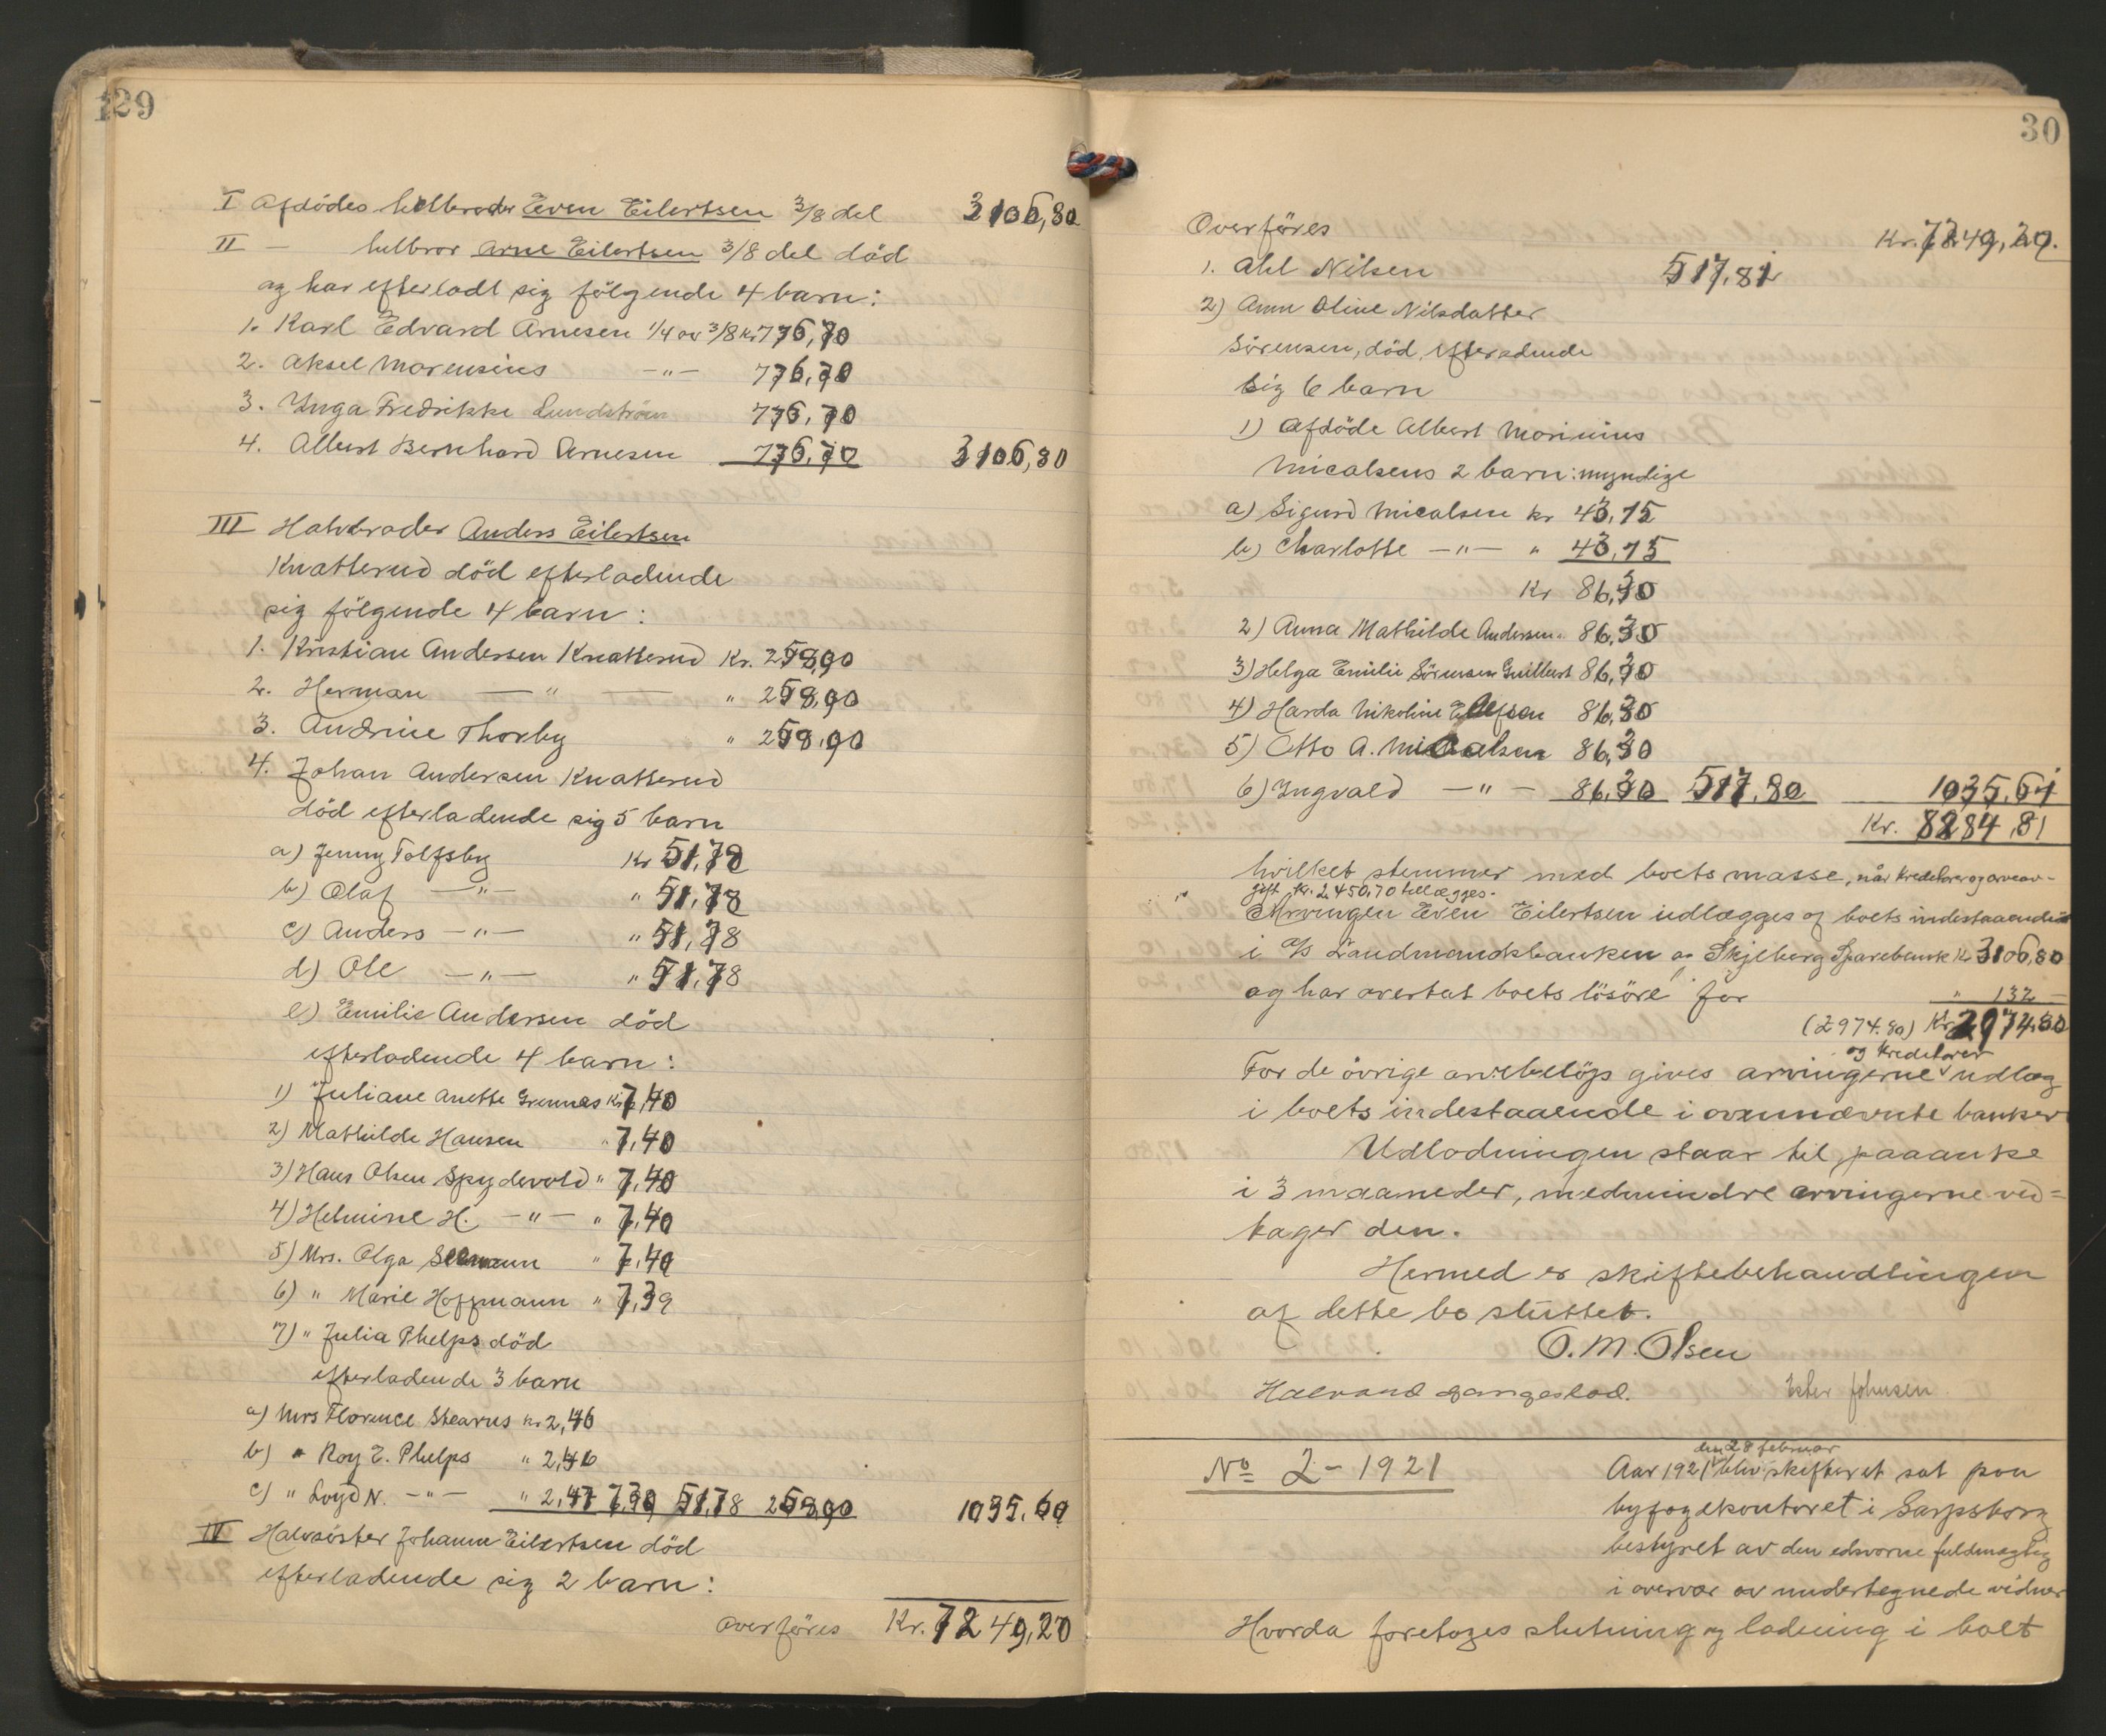 129
I Afdödes helbroder Even Eilertsen 3/8 del 3106,80
II — helbror Arne Eilertsen 3/8 del död
og har efterladt sig følgende 4 barn:
1. Karl Edvard Arnesen 1/4 av 3/8 kr 776,70
2. Aksel Marensius —"— 776,70
3. Ynga Fredrikke Lundström 776,70
4. Albert Bernhard Arnesen 776,70 3106,80
III Halvbroder Anders Eilertsen
Knatterud död efterladende
sig fölgende 4 barn:
1. Kristian Andersen Knatterud Kr. 258,90
2. Herman —"— " 258,90
3. Andrine Thorby " 258,90
4. Johan Andersen Knatterud
död efterladende sig 5 barn
a) Jenny Tolfsby Kr 51,78
b) Olaf —"— " 51,78
c) Anders —"— " 51,78
d) Ole —"— " 51,78
e) Emilie Andersen död
efterladende 4 barn:
1) Juliane Anette Grennes Kr 7,40
2) Mathilde Hansen " 7,40
3) Hans Olsen Spydevold " 7,40
4) Helmine H. —"— " 7,40
5) Mrs. Olga " 7,40
6) " Marie Hoffmann " 7,39
7) " Julia Phelps död
efterladende 3 barn
a) Mrs Florence Stearns kr 2,46
b) " Roy E. Phelps " 2,46
c) " Loyd N. —"— " 2,47 7,39 51,78 258,90 1035,60
IV Halvsöster Johanne Eilertsen död
efterladende sig 2 barn:
overföres Kr. 7249,20
30
Overföres Kr. 7249,20.
1. Ahl Nilsen 517,81
2) Ann Oline Nilsdatter
Sörensen, död, efteradende
sig 6 barn
1) Afdöde Albert Morinius
Micalsens 2 barn: myndige
a) Sigurd Micalsen kr 43,15
b) Charlotte —"— " 43,15
Kr 86,30
2) Anna Mathilde Andersen " 86,30
3) Helga Emilie Sörensen Guilbert 86,30
4) Harda Nikoline Elefsen 86,30
5) Otto A. Micalsen 86,30
6) Yngvald —"— 86,30 517,80 1035,61
Kr. 8284,81
hvilket stemmer med boets masse, når kreditorer og arveav-
gift kr. 2450,70 tillægges.
Arvingen Even Eilertsen udlægges af boets indestaaende
i A/S Landmandsbanken og Skjeberg Sparebank Kr 3106,80
og har overtat boets lösöre for " 132 —
(2974.80) Kr 2974.80
og kreditorer
For de övrige arvebelöp gives arvingerne udlæg
i boets indestaaende i ovennævnte banker
Udlodningen staar til paaanke
i 3 maaneder, medmindre arvingerne ved=
tager den.
Hermed er skiftebehandlingen
af dette bo sluttet.
O. M. Olsen
Halvard Ester Johnsen
No 2 - 1921
den 28 februar
Aar 1921 blev skifteret sat paa
byfogdkontoret i Sarpsborg
bestyret av den edsvorne fuldmegtig
i overvær av undertegnede vidner
Hvorda foretoges slutning og lodning i boet